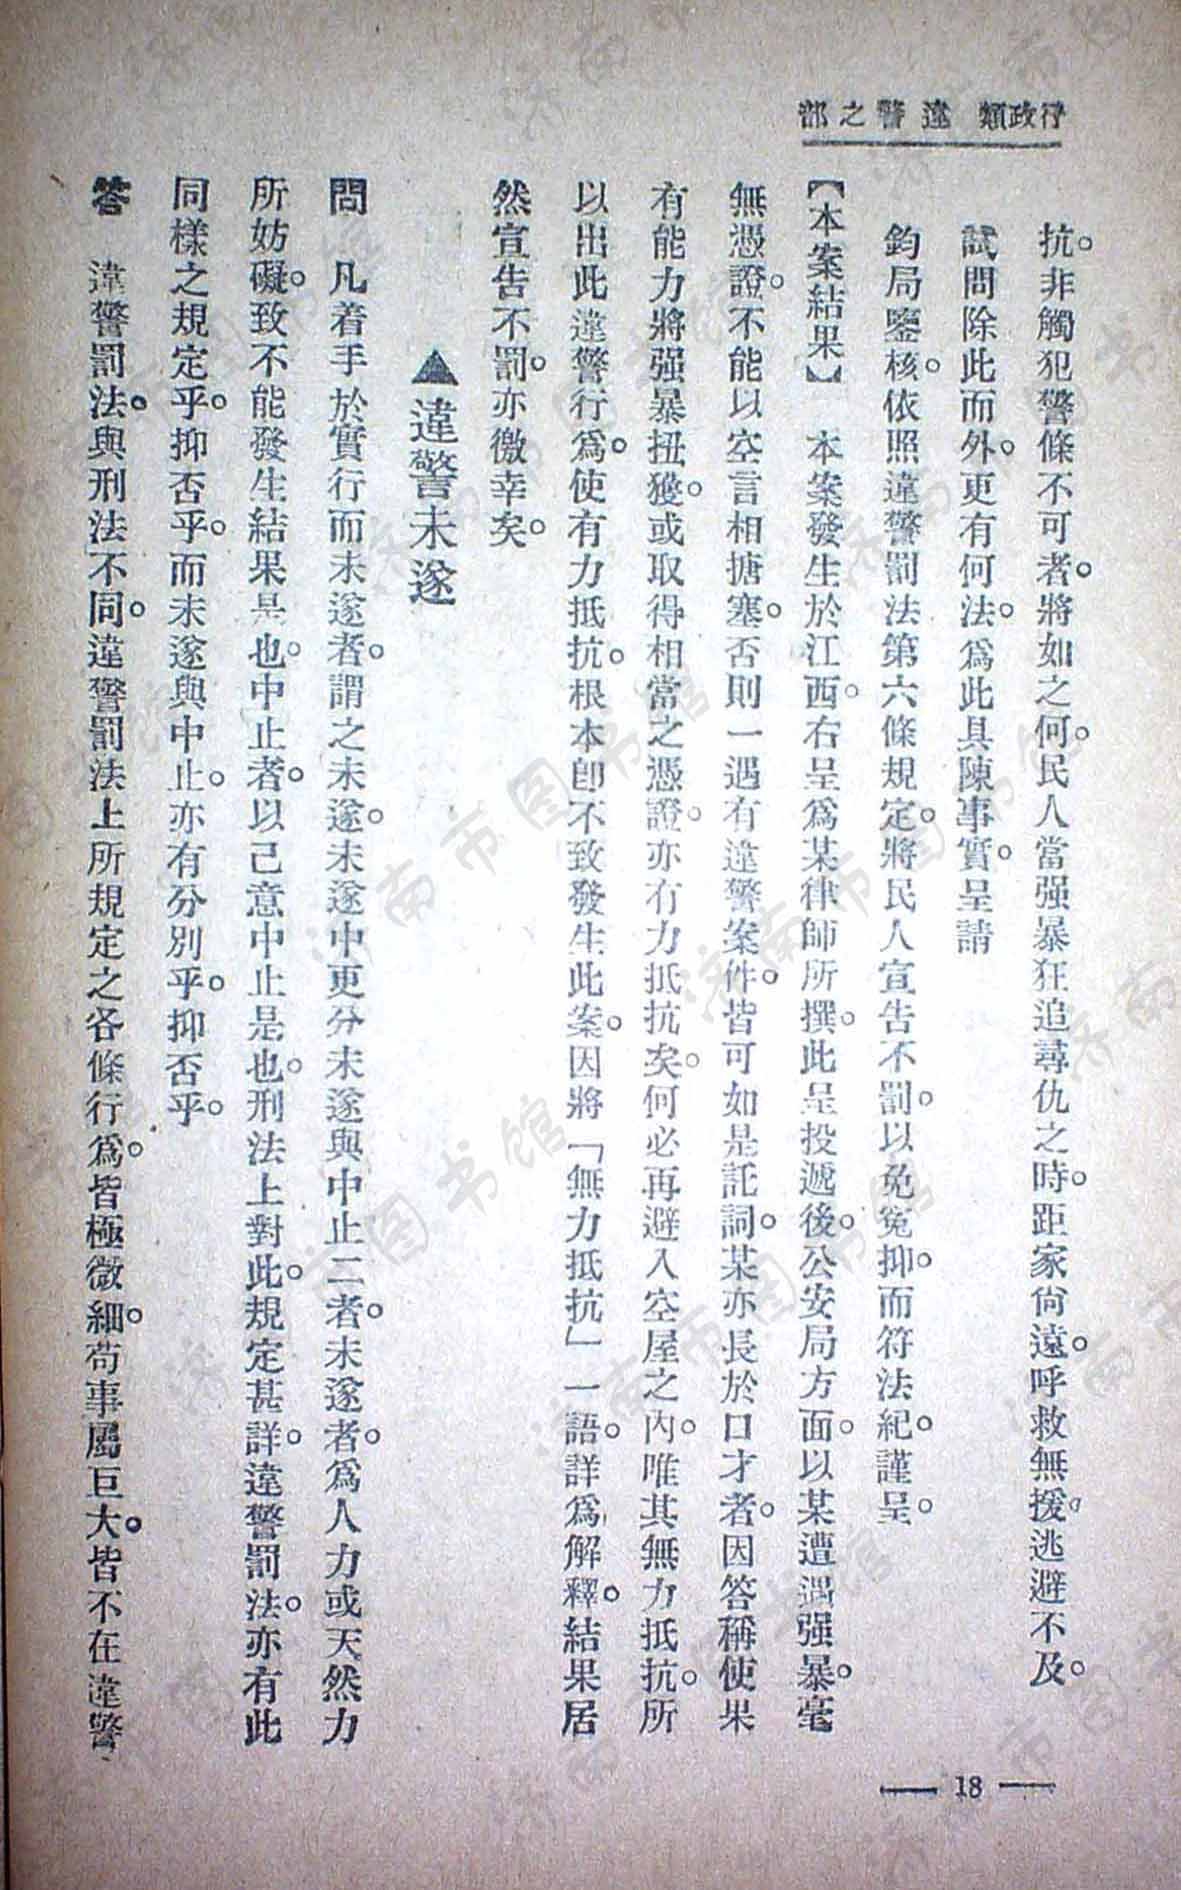 行政類 違警之部
抗。非觸犯警條不可者。將如之何。民人當强暴狂追尋仇之時。距家尙遠。呼救無援。逃避不及。
試問除此而外。更有何法。爲此具陳事實。呈請
鈞局鑒核。依照違警罰法第六條規定。將民人宣告不罰。以免冤抑。而符法紀。謹呈。
【本案結果】 本案發生於江西。右呈爲某律師所撰。此呈投遞後。公安局方面。以某遭遇强暴。毫
無憑證。不能以空言相搪塞。否則一遇有違警案件。皆可如是託詞。某亦長於口才者。因答稱使果
有能力將强暴扭獲。或取得相當之憑證。亦有力抵抗矣。何必再避入空屋之內。唯其無力抵抗。所
以出此違警行爲。使有力抵抗。根本卽不致發生此案。因將「無力抵抗」一語。詳爲解釋。結果居
然宣告不罰。亦徼幸矣。
▲違警未遂
問 凡着手於實行而未遂者。謂之未遂。未遂中更分未遂與中止二者。未遂者。爲人力或天然力
所妨礙。致不能發生結果是也。中止者。以己意中止是也。刑法上對此。規定甚詳。違警罰法。亦有此
同樣之規定乎。抑否乎。而未遂與中止。亦有分別乎。抑否乎。
答 違警罰法。與刑法不同。違警罰法上所規定之各條行爲。皆極微細。苟事屬巨大。皆不在違警
18
济南市图书馆